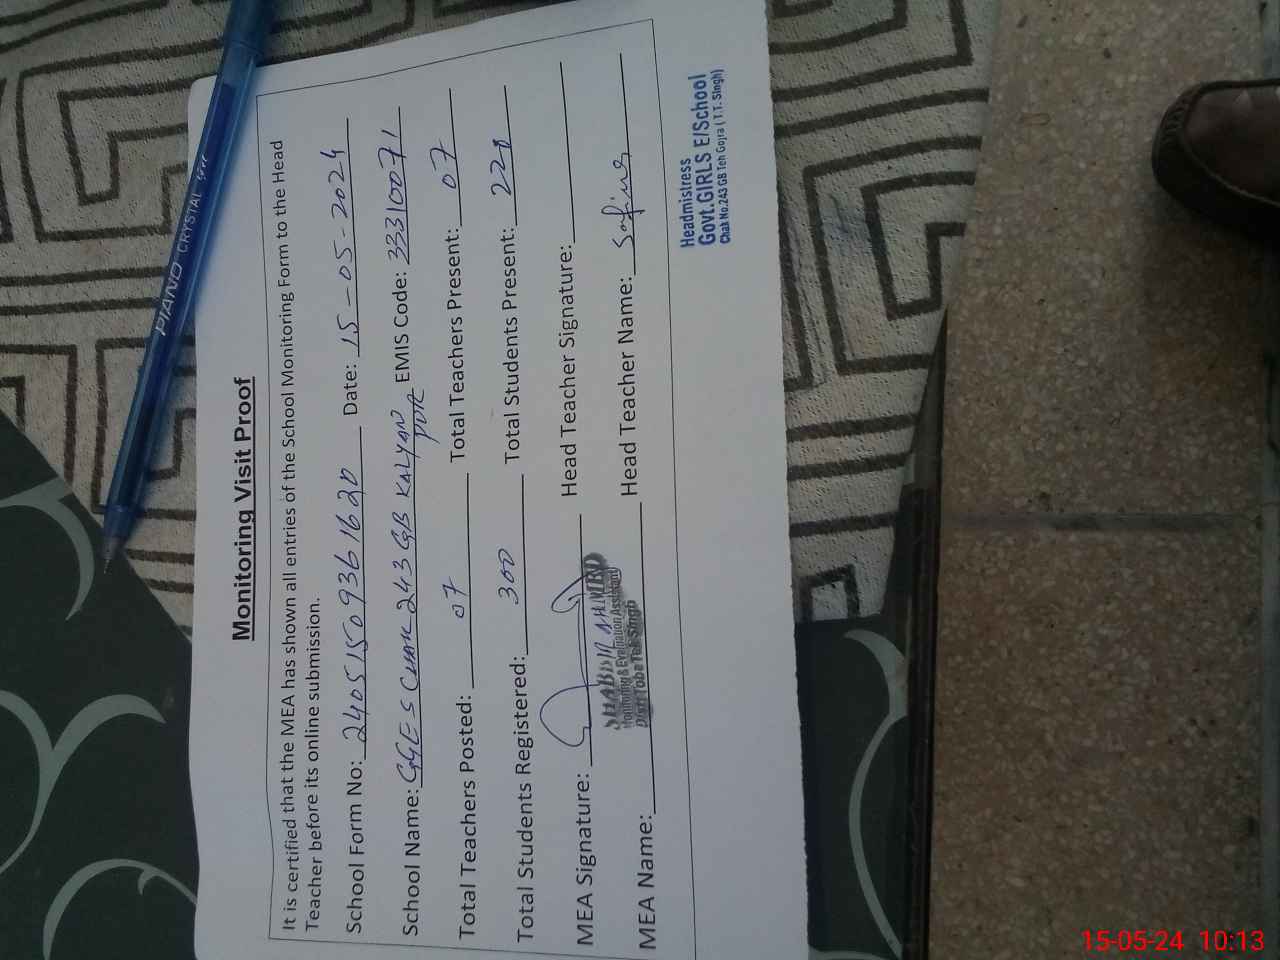 Monitoring Visit Proof
It is certified that the MEA has shown all entries of the School Monitoring Form to the Head
Teacher before its online submission.
School Form No: 24051509361620 Date: 15-05-2024
School Name: GGES CHAK 243 GB KALYAN PUR EMIS Code: 33310071
Total Teachers Posted: 07 Total Teachers Present: 07
Total Students Registered: 300 Total Students Present: 228
MEA Signature: Head Teacher Signature:
MEA Name: Head Teacher Name: Safina
SHABBIR AHMED
Monitoring & Evaluation Assistant
Distt Toba Tek Singh
Headmistress
Govt.GIRLS E/School
Chak No.243 GB Teh Gojra ( T.T. Singh)
PIANO CRYSTAL
15-05-24 10:13